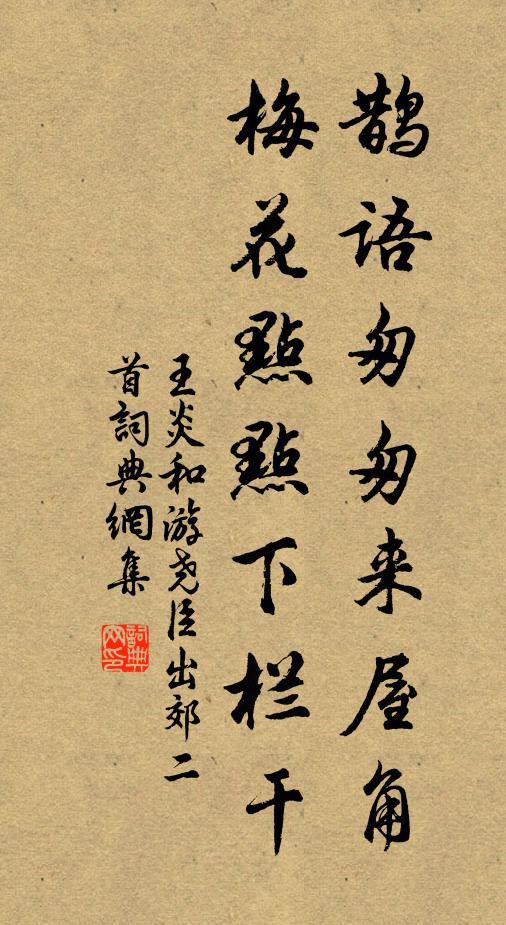 鹊语匆匆来屋角
梅花點點下栏干
王炎和游尧臣出郊二
首詞典網集
詞典
网印